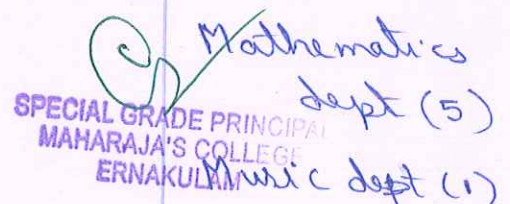 Mathematics
dept (5)
SPECIAL GRADE PRINCIPAL
MAHARAJA'S COLLEGE
ERNAKULAM
Music dept (1)